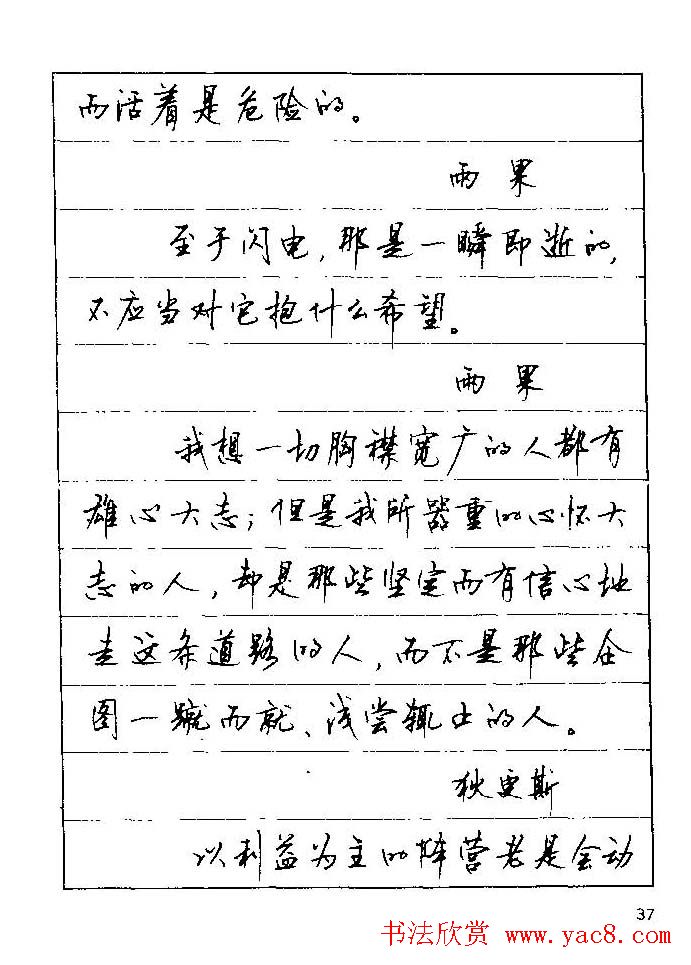 而活着是危险的。
雨果
至于闪电,那是一瞬即逝的,
不应当对它抱什么希望。
雨果
我想一切胸襟宽广的人都有
雄心大志;但是我所器重的心怀大
志的人,却是那些坚定而有信心地
走这条道路的人,而不是那些企
图一蹴而就、浅尝辄止的人。
狄更斯
以利益为主的阵营老是会动
37
书法欣赏 www.yac8.com